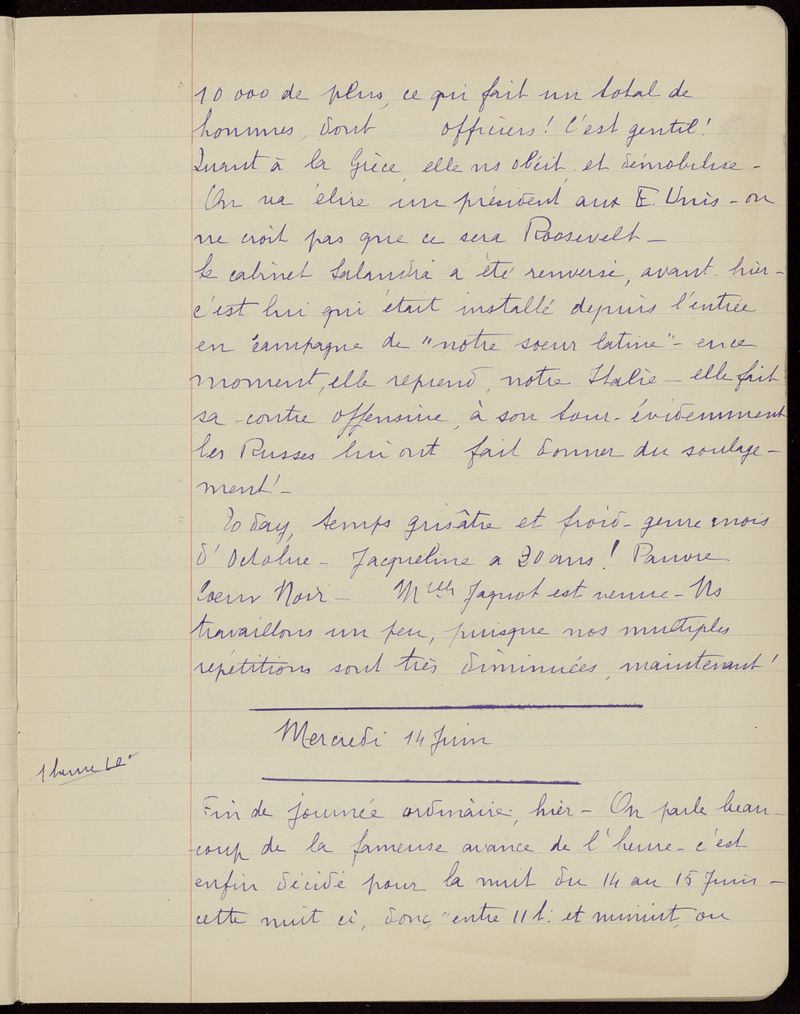 10 000 de plus, ce qui fait un total de
hommes, dont officiers! C'est gentil!
Quant à la Grèce, elle ns obéit, et démobilise -
On va élire un président aux E. Unis - on
ne croit pas que ce sera Roosevelt -
Le cabinet Salandra a été renversé, avant-hier -
c'est lui qui était installé depuis l'entrée
en campagne de "notre soeur latine" - en ce
moment, elle reprend, notre Italie - elle fait
sa contre offensive, à son tour - évidemment
les Russes lui ont fait donner du soulage-
ment! -
To day, temps grisâtre et froid - genre mois
d'Octobre - Jacqueline a 20 ans! Pauvre
Coeur Noir - Melle Jaquot est venue - Ns
travaillons un peu, puisque nos multiples
répétitions sont très diminuées, maintenant!
Mercredi 14 Juin
1 heure
Fin de journée ordinaire, hier - On parle beau-
coup de la fameuse avance de l'heure - c'est
enfin décidé pour la nuit du 14 au 15 Juin -
cette nuit ci, donc, entre 11 h. et minuit, on